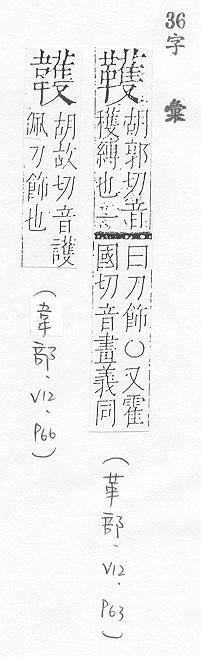 36字彙
韄
胡郭切音
穫縛也一
曰刀飾○又霍
國切音畫義同
(革部.V12.P63)
胡故切音護
佩刀飾也
(韋部.V12.P66)